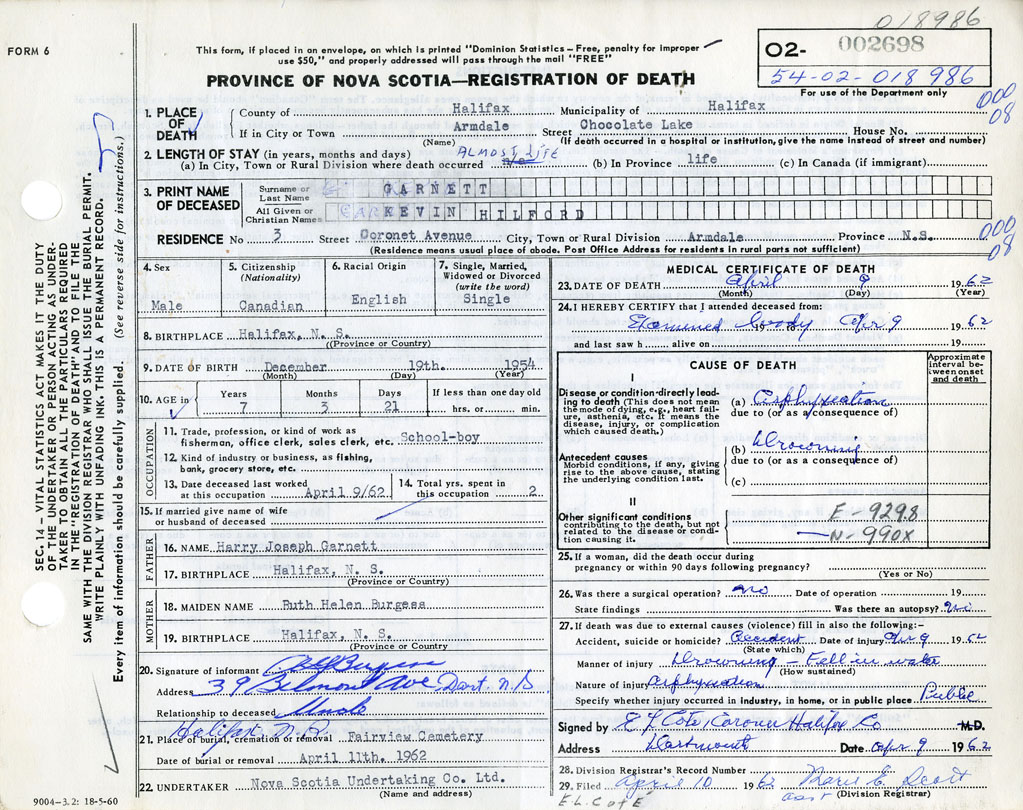 018986
FORM 6
This form, if placed in an envelope, on which is printed "Dominion Statistics – Free, penalty for improper
use $50," and properly addressed will pass through the mail "FREE"
PROVINCE OF NOVA SCOTIA—REGISTRATION OF DEATH
O2- 002698
54-02-018986
For use of the Department only
000
08
1. PLACE OF DEATH County of Halifax Municipality of Halifax
If in City or Town Armdale Street Chocolate Lake House No.
(Name) (If death occurred in a hospital or institution, give the name instead of street and number)
2. LENGTH OF STAY (in years, months and days) ALMOST LIFE
(a) In City, Town or Rural Division where death occurred (b) In Province life (c) In Canada (if immigrant)
3. PRINT NAME OF DECEASED
Surname or Last Name GARNETT
All Given or Christian Names KEVIN HILFORD
RESIDENCE No 3 Street Coronet Avenue City, Town or Rural Division Armdale Province N.S.
(Residence means usual place of abode. Post Office Address for residents in rural parts not sufficient)
000
08
4. Sex Male
5. Citizenship (Nationality) Canadian
6. Racial Origin English
7. Single, Married, Widowed or Divorced (write the word) Single
8. BIRTHPLACE Halifax, N. S.
(Province or Country)
9. DATE OF BIRTH December 19th. 1954
(Month) (Day) (Year)
10. AGE in Years 7 Months 3 Days 21 If less than one day old hrs. or min.
OCCUPATION
11. Trade, profession, or kind of work as
fisherman, office clerk, sales clerk, etc. School-boy
12. Kind of industry or business, as fishing,
bank, grocery store, etc.
13. Date deceased last worked
at this occupation April 9/62
14. Total yrs. spent in
this occupation 2
15. If married give name of wife
or husband of deceased
FATHER
16. NAME Harry Joseph Garnett
17. BIRTHPLACE Halifax, N. S.
(Province or Country)
MOTHER
18. MAIDEN NAME Ruth Helen Burgess
19. BIRTHPLACE Halifax, N. S.
(Province or Country
20. Signature of informant Burgess
Address 39 Belmont Ave, Dart. N.S
Relationship to deceased Uncle
Halifax N.S.
21. Place of burial, cremation or removal Fairview Cemetery
Date of burial or removal April 11th. 1962
22. UNDERTAKER Nova Scotia Undertaking Co. Ltd.
(Name and address)
9004-3.2: 18-5-60
MEDICAL CERTIFICATE OF DEATH
23. DATE OF DEATH April 9 1962
(Month) (Day) (Year)
24. I HEREBY CERTIFY that I attended deceased from:
Examined body Apr 9 1962
and last saw h alive on 19
CAUSE OF DEATH
Approximate interval between onset and death
I
Disease or condition directly leading to death (This does not mean
the mode of dying, e.g., heart failure, asthenia, etc. It means the
disease, injury, or complication
which caused death.)
(a) Asphyxeation
due to (or as a consequence of)
Antecedent causes
Morbid conditions, if any, giving
rise to the above cause, stating
the underlying condition last.
(b) Drowning
due to (or as a consequence of)
(c)
II
Other significant conditions
contributing to the death, but not
related to the disease or condition
causing it.
E-9298
N-990X
25. If a woman, did the death occur during
pregnancy or within 90 days following pregnancy?
(Yes or No)
26. Was there a surgical operation? No Date of operation 19
State findings Was there an autopsy? No
27. If death was due to external causes (violence) fill in also the following:–
Accident, suicide or homicide? Accident Date of injury Apr 9 1962
(State which)
Manner of injury Drowning – Fell in water
(How sustained)
Nature of injury Asphyxeation
Specify whether injury occurred in industry, in home, or in public place Public
Signed by E L Cote, Coroner Halifax Co M.D.
Address Dartmouth Date Apr 9 1962
28. Division Registrar's Record Number
29. Filed April 10 1962 Marie E. Scott
asst (Division Registrar)
E.L. CoTE
SEC. 14 – VITAL STATISTICS ACT MAKES IT THE DUTY
OF THE UNDERTAKER OR PERSON ACTING AS UNDERTAKER
TO OBTAIN ALL THE PARTICULARS REQUIRED
IN THE "REGISTRATION OF DEATH" AND TO FILE THE
SAME WITH THE DIVISION REGISTRAR WHO SHALL ISSUE THE BURIAL PERMIT.
WRITE PLAINLY WITH UNFADING INK. THIS IS A PERMANENT RECORD.
Every item of information should be carefully supplied. (See reverse side for instructions.)